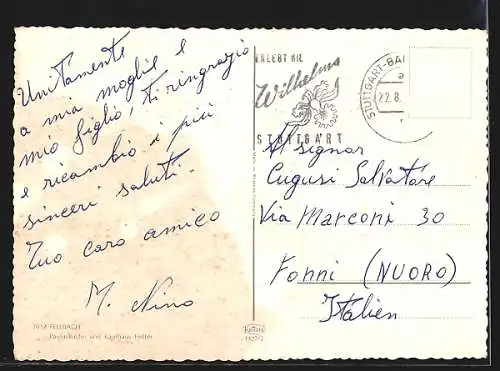 Unitamente
a mia moglie e
mio figlio, ti ringrazio
e ricambio i più
sinceri saluti.
Tuo caro amico
M. Nino
7012 FELLBACH
Pauluskirche und Kaufhaus Hetter
ERLEBT DIE
Wilhelma
STUTTGART
STUTTGART-BA
22.8.
Al signor
Cugusi Salvatore
Via Marconi 30
Fonni (NUORO)
Italien